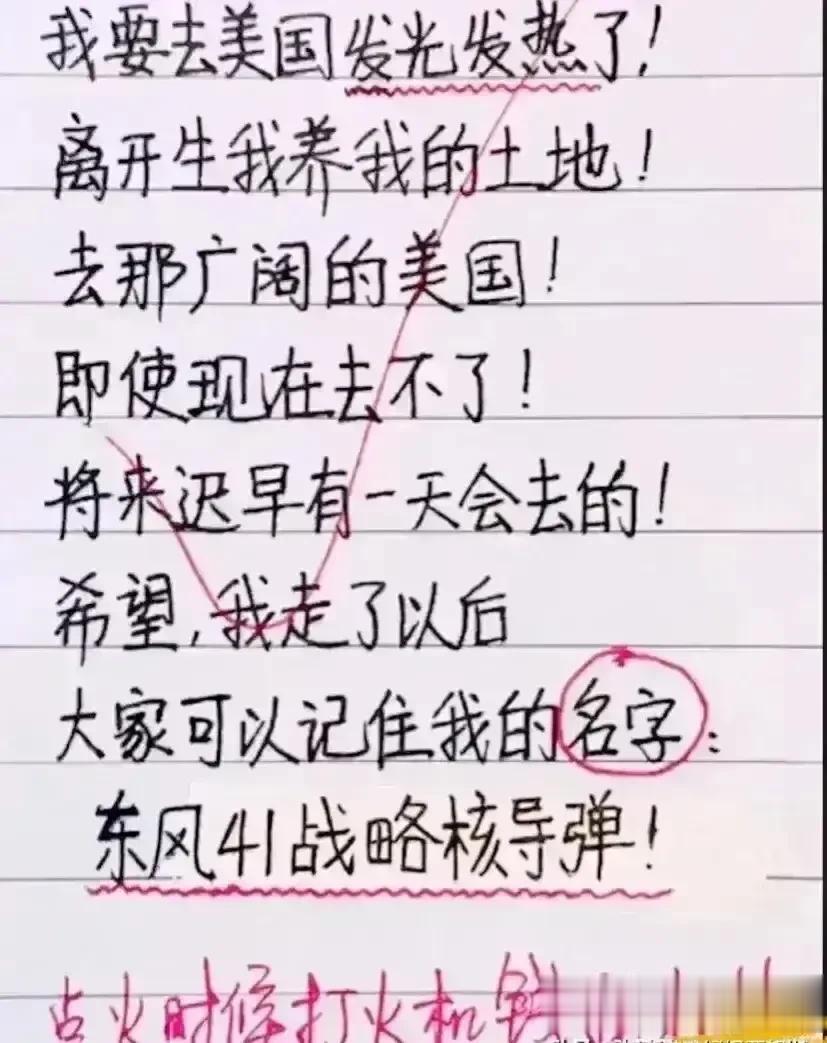 我要去美国发光发热了！
离开生我养我的土地！
去那广阔的美国！
即使现在去不了！
将来迟早有一天会去的！
希望，我走了以后
大家可以记住我的名字：
东风41战略核导弹！
点火时候打火机